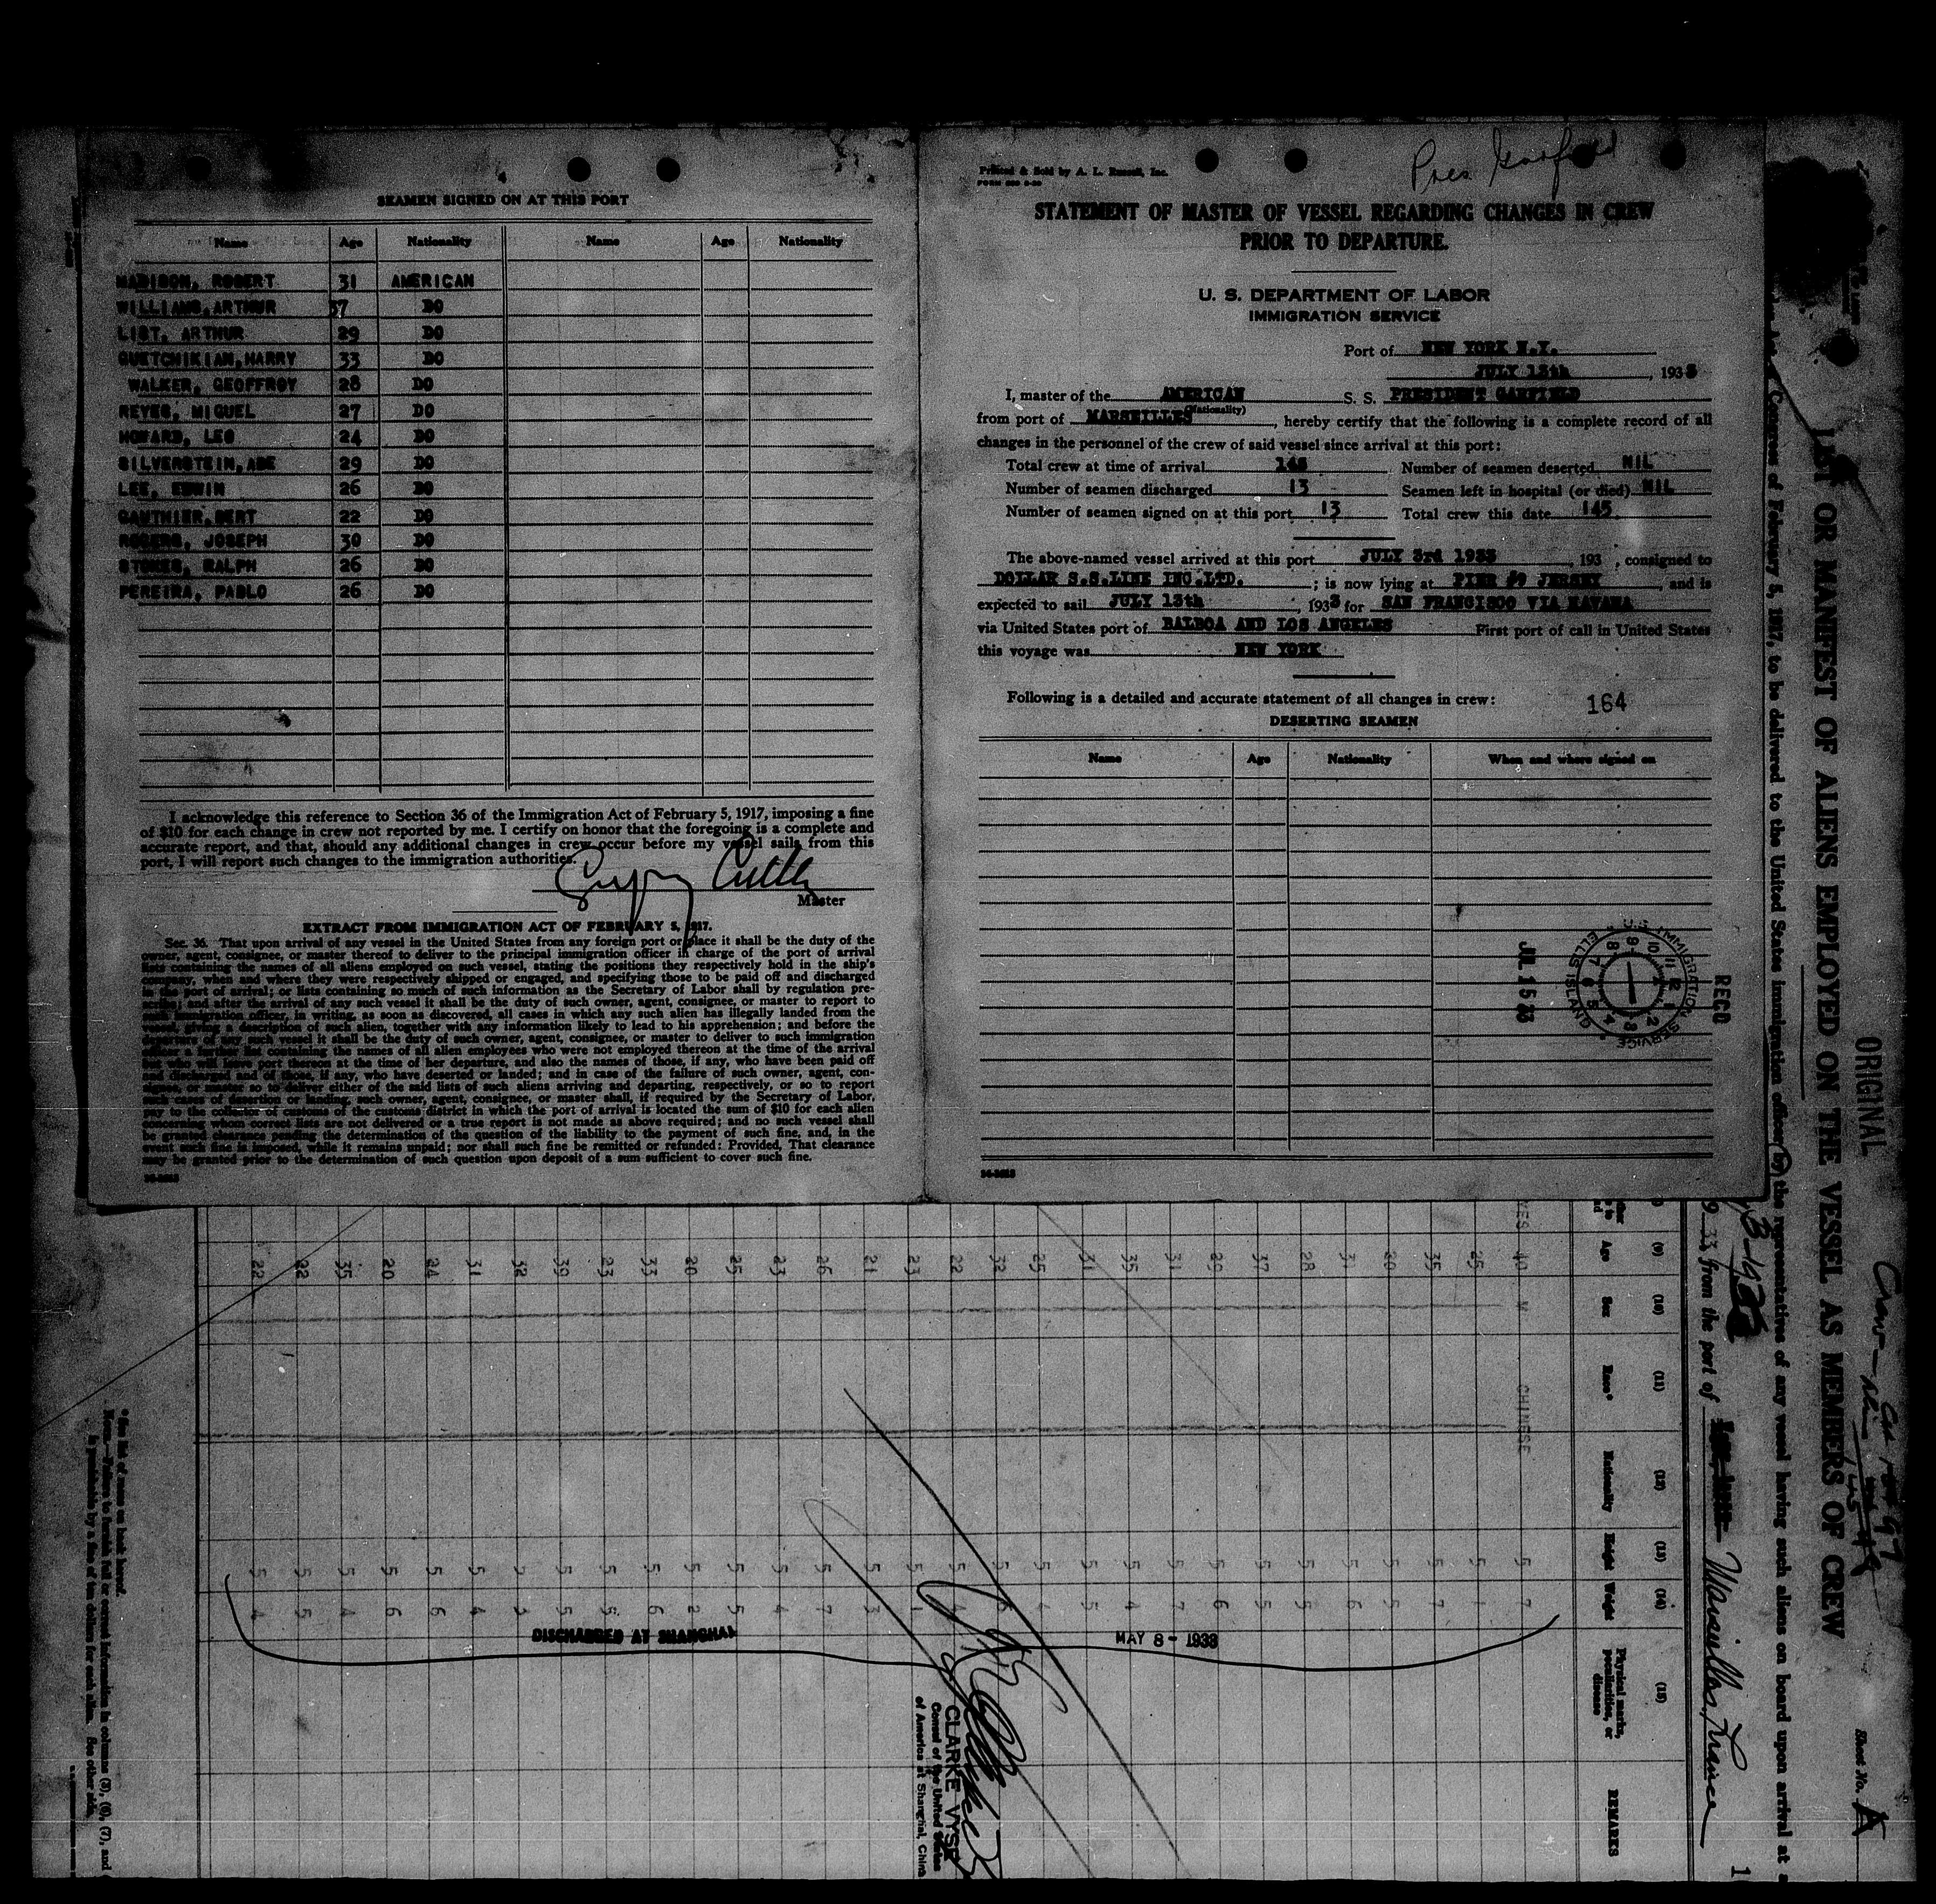 SEAMEN SIGNED ON AT THIS PORT
Name Age Nationality Name Age Nationality
MADISON, ROBERT 31 AMERICAN
WILLIAMS, ARTHUR 37 DO
LIST, ARTHUR 29 DO
GUETCHIKIAN, HARRY 33 DO
WALKER, GEOFFROY 28 DO
REYES, MIGUEL 27 DO
HOWARD, LEO 24 DO
SILVERSTEIN, ABE 29 DO
LEE, EDWIN 26 DO
GAUTHIER, BERT 22 DO
ROGERS, JOSEPH 30 DO
STOKES, RALPH 26 DO
PEREIRA, PABLO 26 DO
I acknowledge this reference to Section 36 of the Immigration Act of February 5, 1917, imposing a fine
of $10 for each change in crew not reported by me. I certify on honor that the foregoing is a complete and
accurate report, and that, should any additional changes in crew occur before my vessel sails from this
port, I will report such changes to the immigration authorities.
Master
EXTRACT FROM IMMIGRATION ACT OF FEBRUARY 5, 1917.
Sec. 36. That upon arrival of any vessel in the United States from any foreign port or place it shall be the duty of the
owner, agent, consignee, or master thereof to deliver to the principal immigration officer in charge of the port of arrival
lists containing the names of all aliens employed on such vessel, stating the positions they respectively hold in the ship's
company, when and where they were respectively shipped or engaged, and specifying those to be paid off and discharged
in the port of arrival; or lists containing so much of such information as the Secretary of Labor shall by regulation pre-
scribe; and after the arrival of any such vessel it shall be the duty of such owner, agent, consignee, or master to report to
such immigration officer, in writing, as soon as discovered, all cases in which any such alien has illegally landed from the
vessel, giving a description of such alien, together with any information likely to lead to his apprehension; and before the
departure of any such vessel it shall be the duty of such owner, agent, consignee, or master to deliver to such immigration
officer a further list containing the names of all alien employees who were not employed thereon at the time of the arrival
but who will leave port thereon at the time of her departure, and also the names of those, if any, who have been paid off
and discharged, and of those, if any, who have deserted or landed; and in case of the failure of such owner, agent, con-
signee, or master so to deliver either of the said lists of such aliens arriving and departing, respectively, or so to report
such cases of desertion or landing, such owner, agent, consignee, or master shall, if required by the Secretary of Labor,
pay to the collector of customs of the customs district in which the port of arrival is located the sum of $10 for each alien
concerning whom correct lists are not delivered or a true report is not made as above required; and no such vessel shall
be granted clearance pending the determination of the question of the liability to the payment of such fine, and, in the
event such fine is imposed, while it remains unpaid; nor shall such fine be remitted or refunded: Provided, That clearance
may be granted prior to the determination of such question upon deposit of a sum sufficient to cover such fine.
Pres Garfield
Printed & Sold by A. L. Russell, Inc.
STATEMENT OF MASTER OF VESSEL REGARDING CHANGES IN CREW
PRIOR TO DEPARTURE.
U. S. DEPARTMENT OF LABOR
IMMIGRATION SERVICE
Port of NEW YORK N.Y.
JULY 13th, 1933
I, master of the AMERICAN S. S. PRESIDENT GARFIELD
(Nationality)
from port of MARSEILLES, hereby certify that the following is a complete record of all
changes in the personnel of the crew of said vessel since arrival at this port:
Total crew at time of arrival 145 Number of seamen deserted NIL
Number of seamen discharged 13 Seamen left in hospital (or died) NIL
Number of seamen signed on at this port 13 Total crew this date 145
The above-named vessel arrived at this port JULY 3rd 1933, 193 , consigned to
DOLLAR S.S.LINE INC.LTD. ; is now lying at PIER #9 JERSEY, and is
expected to sail JULY 13th, 1933 for SAN FRANCISCO VIA HAVANA
via United States port of BALBOA AND LOS ANGELES First port of call in United States
this voyage was NEW YORK
Following is a detailed and accurate statement of all changes in crew:
164
DESERTING SEAMEN
Name Age Nationality When and where signed on
REC'D
U.S. IMMIGRATION SERVICE ELLIS ISLAND
JUL 15 33
ORIGINAL
Sheet No. A
LIST OR MANIFEST OF ALIENS EMPLOYED ON THE VESSEL AS MEMBERS OF CREW
Congress of February 5, 1917, to be delivered to the United States immigration officer by the representatives of any vessel having such aliens on board upon arrival at
from the port of Marseilles, France
1
(9) (10) (11) (12) (13) (14) (15)
Age Sex Race* Nationality Height Weight Physical marks, peculiarities, or disease REMARKS
YES 40 M CHINESE
DISCHARGED AT SHANGHAI MAY 8 - 1933
CLARKE VYSE
Consul of the United States
of America at Shanghai, China
*See list of races on back hereof.
Note.—Failure to furnish full or correct information in columns (3), (6), (7), and
is punishable by a fine of ten dollars for each alien. See other side.